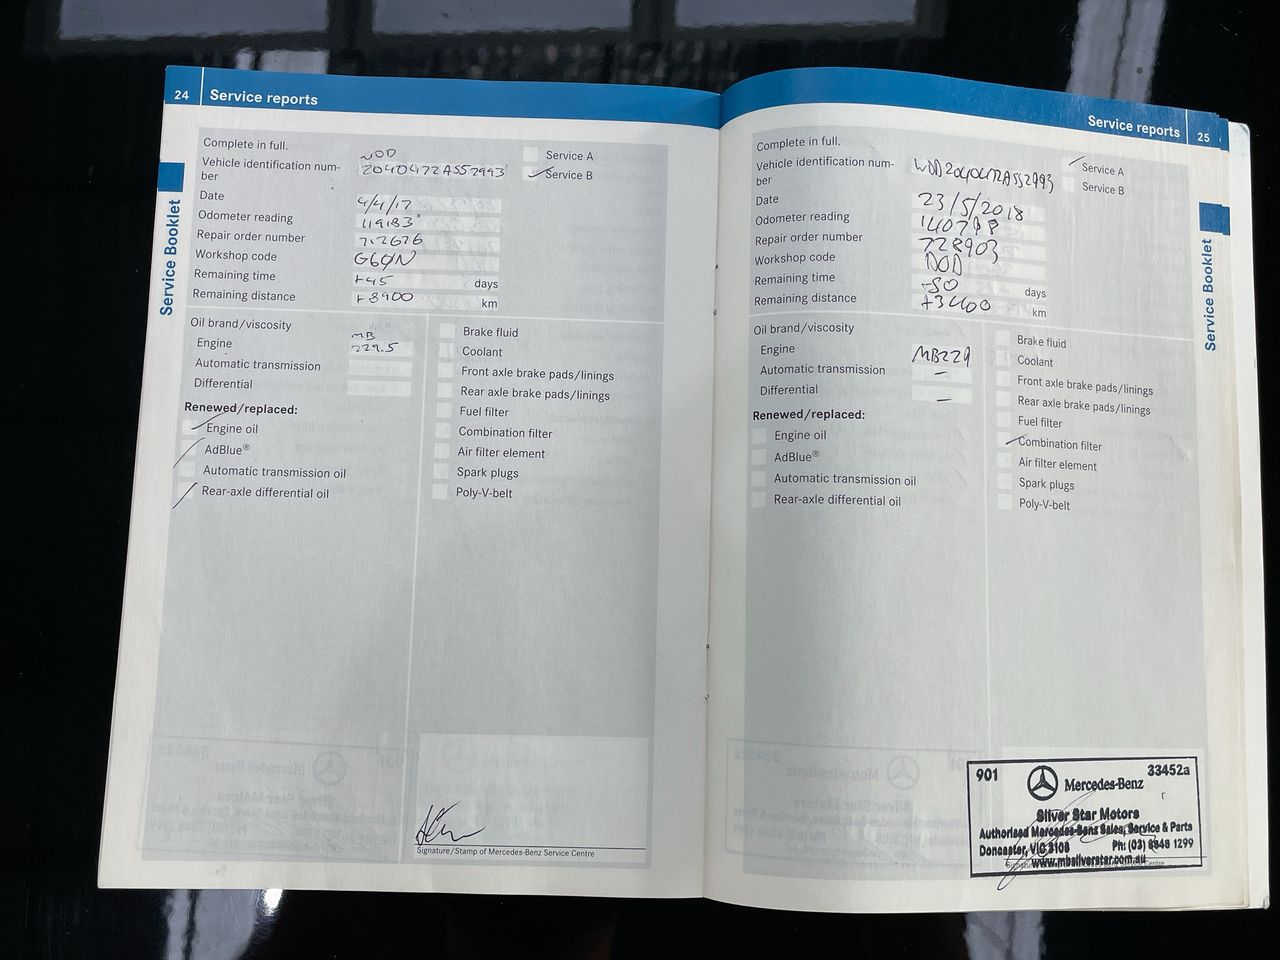 24 Service reports
Service Booklet
Complete in full.
Vehicle identification num-
ber
WDD
2040472A552993
Service A
Service B
Date 4/4/17
Odometer reading 119183
Repair order number 712676
Workshop code
Remaining time +45 days
Remaining distance +8900 km
Oil brand/viscosity
Engine MB
229.5
Automatic transmission
Differential
Renewed/replaced:
Engine oil
AdBlue®
Automatic transmission oil
Rear-axle differential oil
Brake fluid
Coolant
Front axle brake pads/linings
Rear axle brake pads/linings
Fuel filter
Combination filter
Air filter element
Spark plugs
Poly-V-belt
Signature/Stamp of Mercedes-Benz Service Centre
Service reports 25
Service Booklet
Complete in full.
Vehicle identification num-
ber
WDD2040472A552993
Service A
Service B
Date 23/5/2018
Odometer reading 140798
Repair order number 728903
Workshop code DOD
Remaining time -50 days
Remaining distance +3400 km
Oil brand/viscosity
Engine MB229
Automatic transmission –
Differential –
Renewed/replaced:
Engine oil
AdBlue®
Automatic transmission oil
Rear-axle differential oil
Brake fluid
Coolant
Front axle brake pads/linings
Rear axle brake pads/linings
Fuel filter
Combination filter
Air filter element
Spark plugs
Poly-V-belt
901 Mercedes-Benz 33452a
Silver Star Motors
Authorised Mercedes-Benz Sales, Service & Parts
Doncaster, VIC 3108 Ph: (03) 8848 1299
www.mbsilverstar.com.au